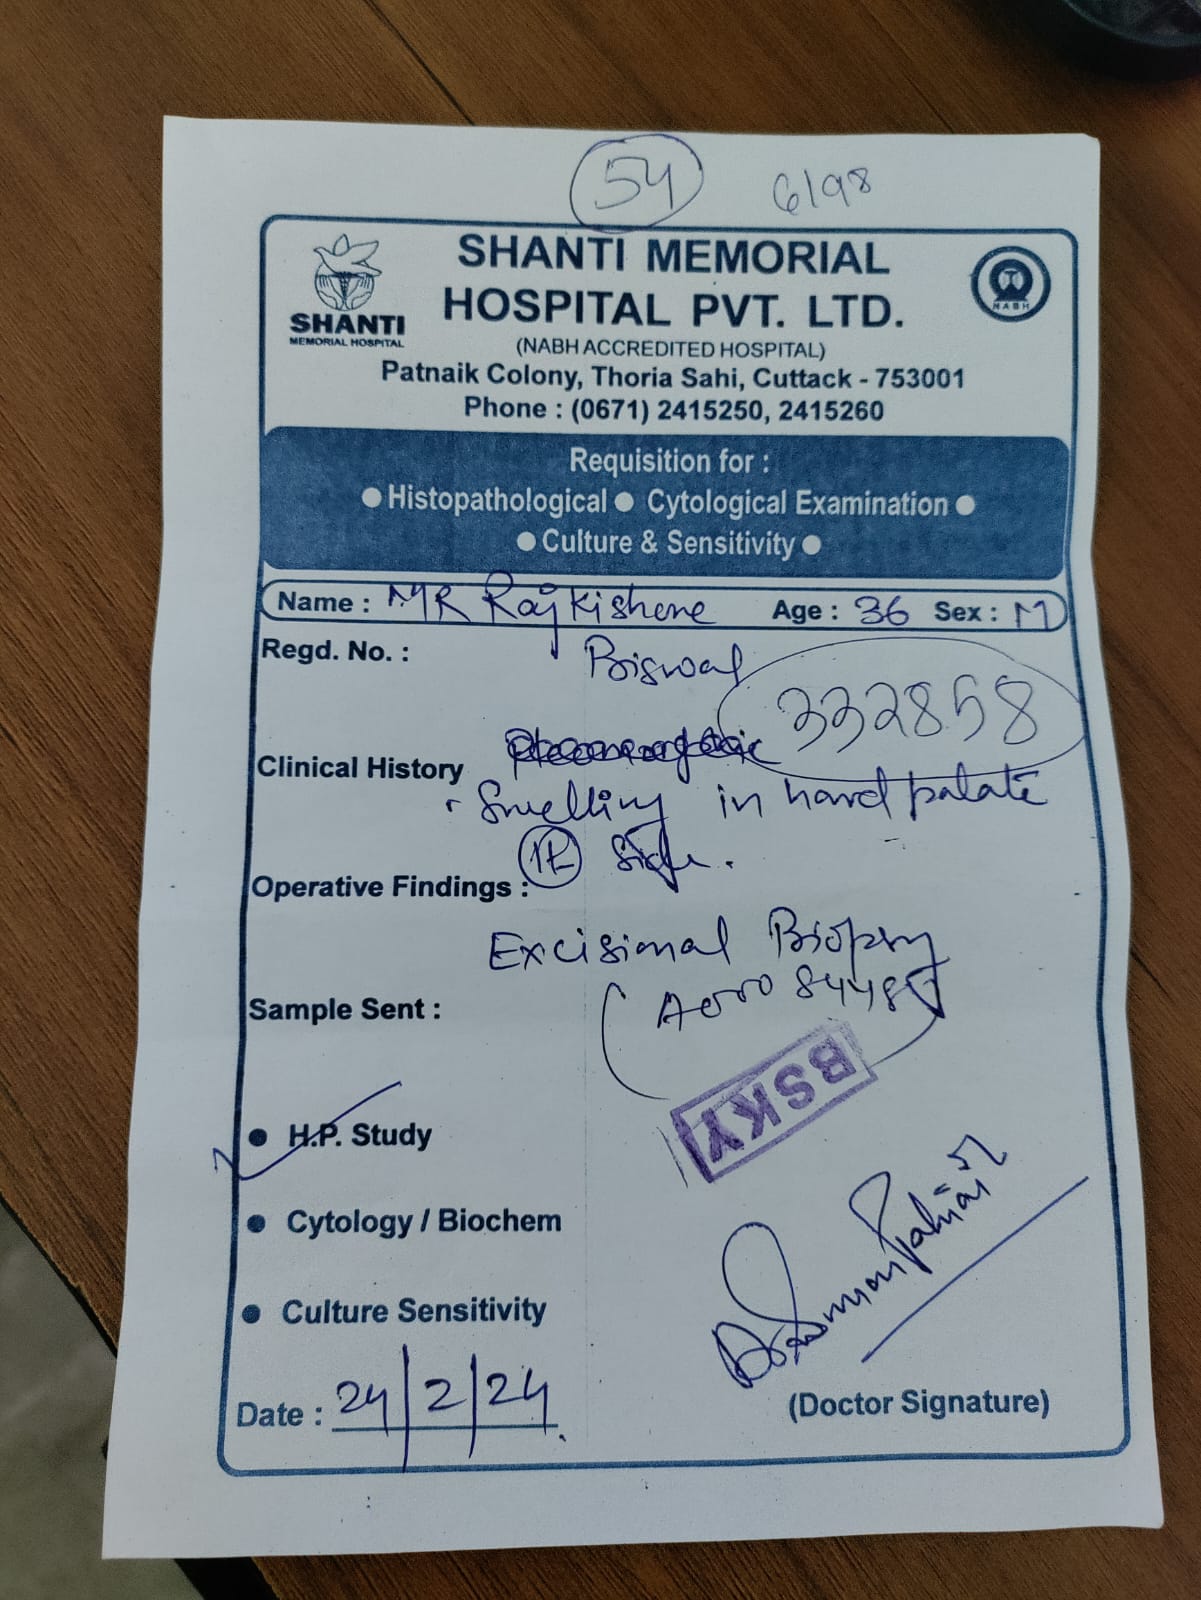 54 6198
SHANTI
MEMORIAL HOSPITAL
SHANTI MEMORIAL
HOSPITAL PVT. LTD.
NABH
(NABH ACCREDITED HOSPITAL)
Patnaik Colony, Thoria Sahi, Cuttack - 753001
Phone : (0671) 2415250, 2415260
Requisition for :
● Histopathological ● Cytological Examination ●
● Culture & Sensitivity ●
Name : MR Rajkishore Age : 36 Sex : M
Regd. No. : Biswal
332858
Clinical History
Swelling in hard palate
side.
Operative Findings :
Excisional Biopsy
Sample Sent :
BSKY
● H.P. Study
● Cytology / Biochem
● Culture Sensitivity
Date : 24/2/24
(Doctor Signature)